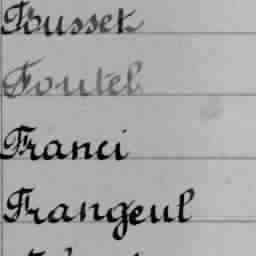 Fousset
Foutel
Franci
Frangeul